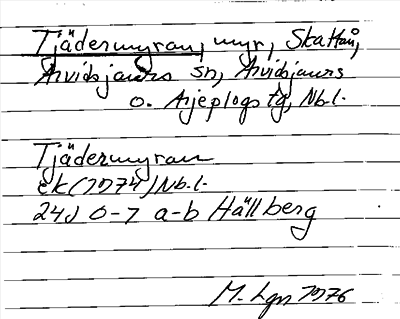 Tjädermyran, myr, Skattån,
Arvidsjaurs sn, Arvidsjaurs
o. Arjeplogs tg, Nb.l.
Tjädermyran
ek (1974) Nb.l.
24J 0-7 a-b Hällberg
M. Lgn 1976